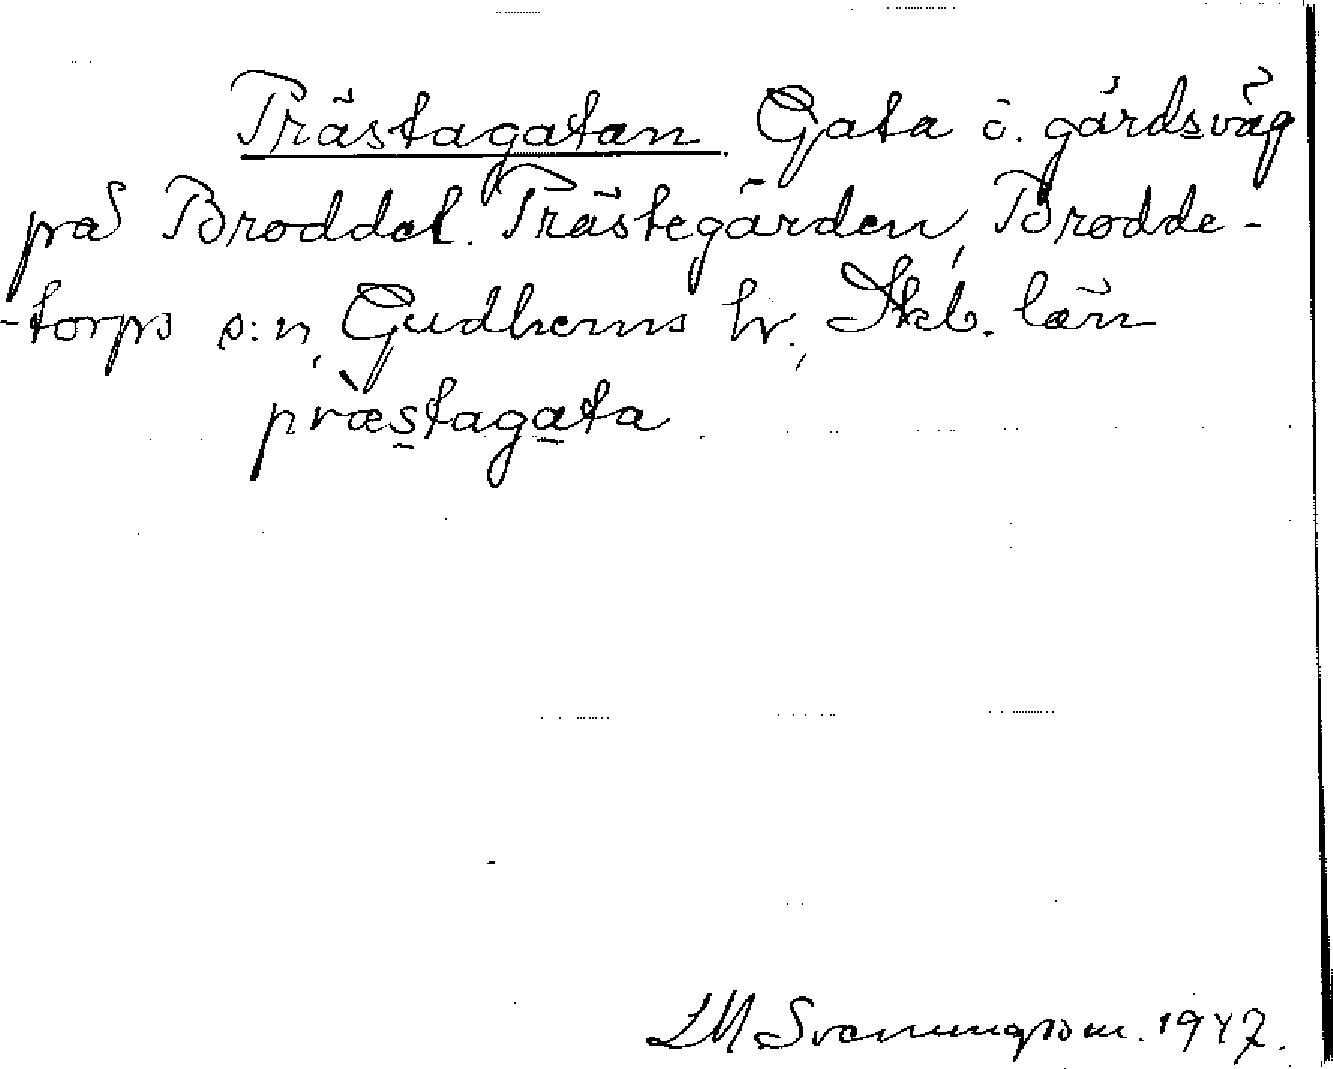 Prästagatan. Gata o. gårdsväg
på Broddet. Prästegården, Brodde-
-torps s:n, Gudhems hr., Skb. län
præstagata
LM Svenungsson. 1947.